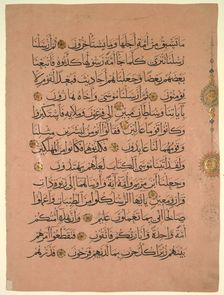 ما تسبق من أمة أجلها وما يستأخرون ثم أرسلنا
رسلنا تترى كل ما جاء أمة رسولها كذبوه فأتبعنا
بعضهم بعضا وجعلناهم أحاديث فبعدا لقوم لا
يؤمنون ثم أرسلنا موسى وأخاه هارون
بآياتنا وسلطان مبين إلى فرعون وملائه فاستكبروا
وكانوا قوما عالين فقالوا أنؤمن لبشرين مثلنا
وقومهما لنا عابدون فكذبوهما فكانوا من المهلكين
ولقد آتينا موسى الكتاب لعلهم يهتدون
وجعلنا ابن مريم وأمه آية وآويناهما إلى ربوة ذات
قرار ومعين يا أيها الرسل كلوا من الطيبات واعملوا
صالحا إني بما تعملون عليم وإن هذه أمتكم
أمة واحدة وأنا ربكم فاتقون فتقطعوا أمرهم
بينهم زبرا كل حزب بما لديهم فرحون